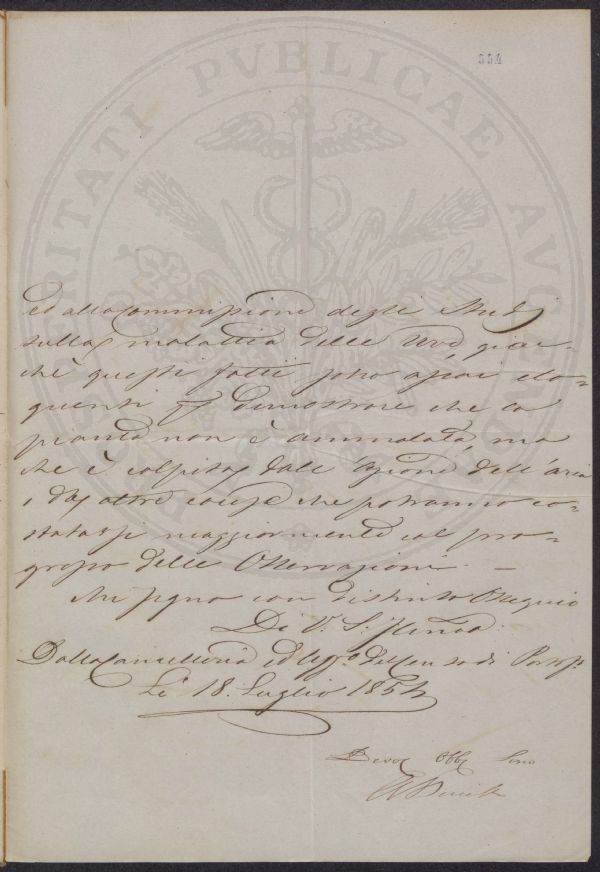 334
PROSPERITATI PVBLICAE AVGENDAE
ed alla Commissione degli Studj
sulla malattia delle Uve, giac=
chè questi fatti sono assai elo=
quenti p dimostrare che la
pianta non è ammalata, ma
che è colpita dall'azione dell'aria
o da altre cause che potranno co=
statarsi maggiormente col pro=
gresso delle Osservazioni. —
Mi segno con distinto Ossequio
Di V. S. Illma
Dalla Cancelleria ed Uffo del Censo di
Li 18. Luglio 1854
Devo Obbo Servo